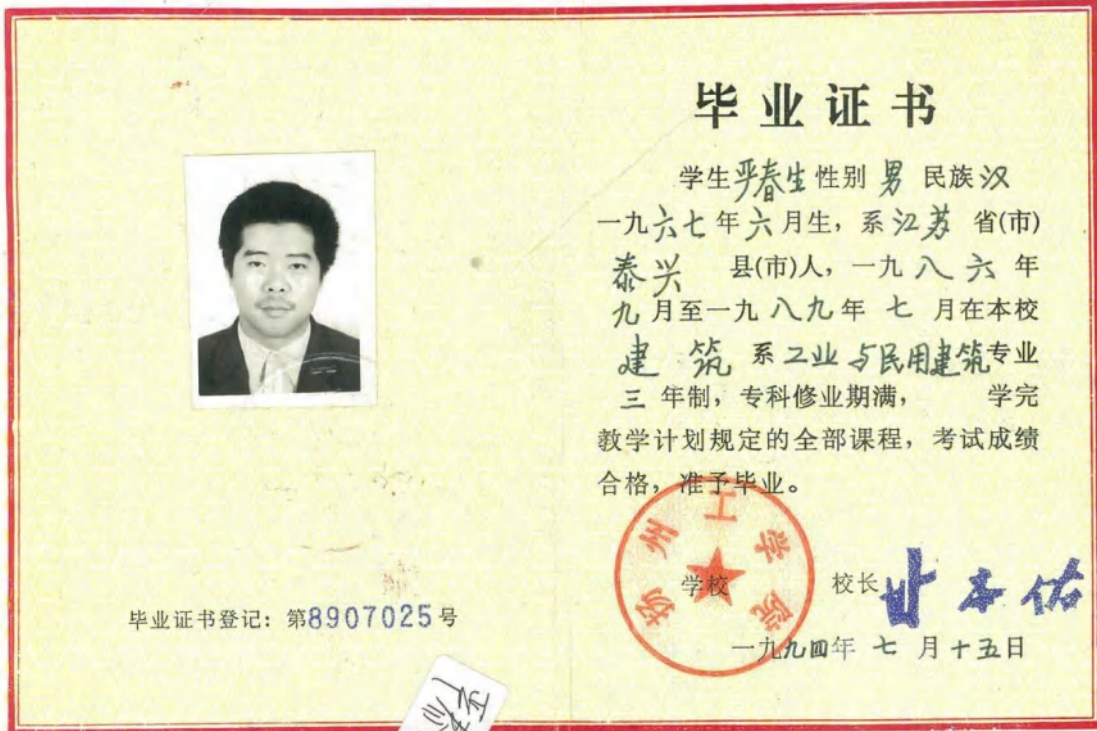 毕业证书
学生严春生性别 男 民族汉
一九六七年六月生，系江苏 省(市)
泰兴 县(市)人，一九八六年
九月至一九八九年 七 月在本校
建 筑 系工业与民用建筑专业
三 年制，专科修业期满， 学完
教学计划规定的全部课程，考试成绩
合格，准予毕业。
扬州工学院
学校 校长
一九九四年 七 月十五日
毕业证书登记：第8907025号